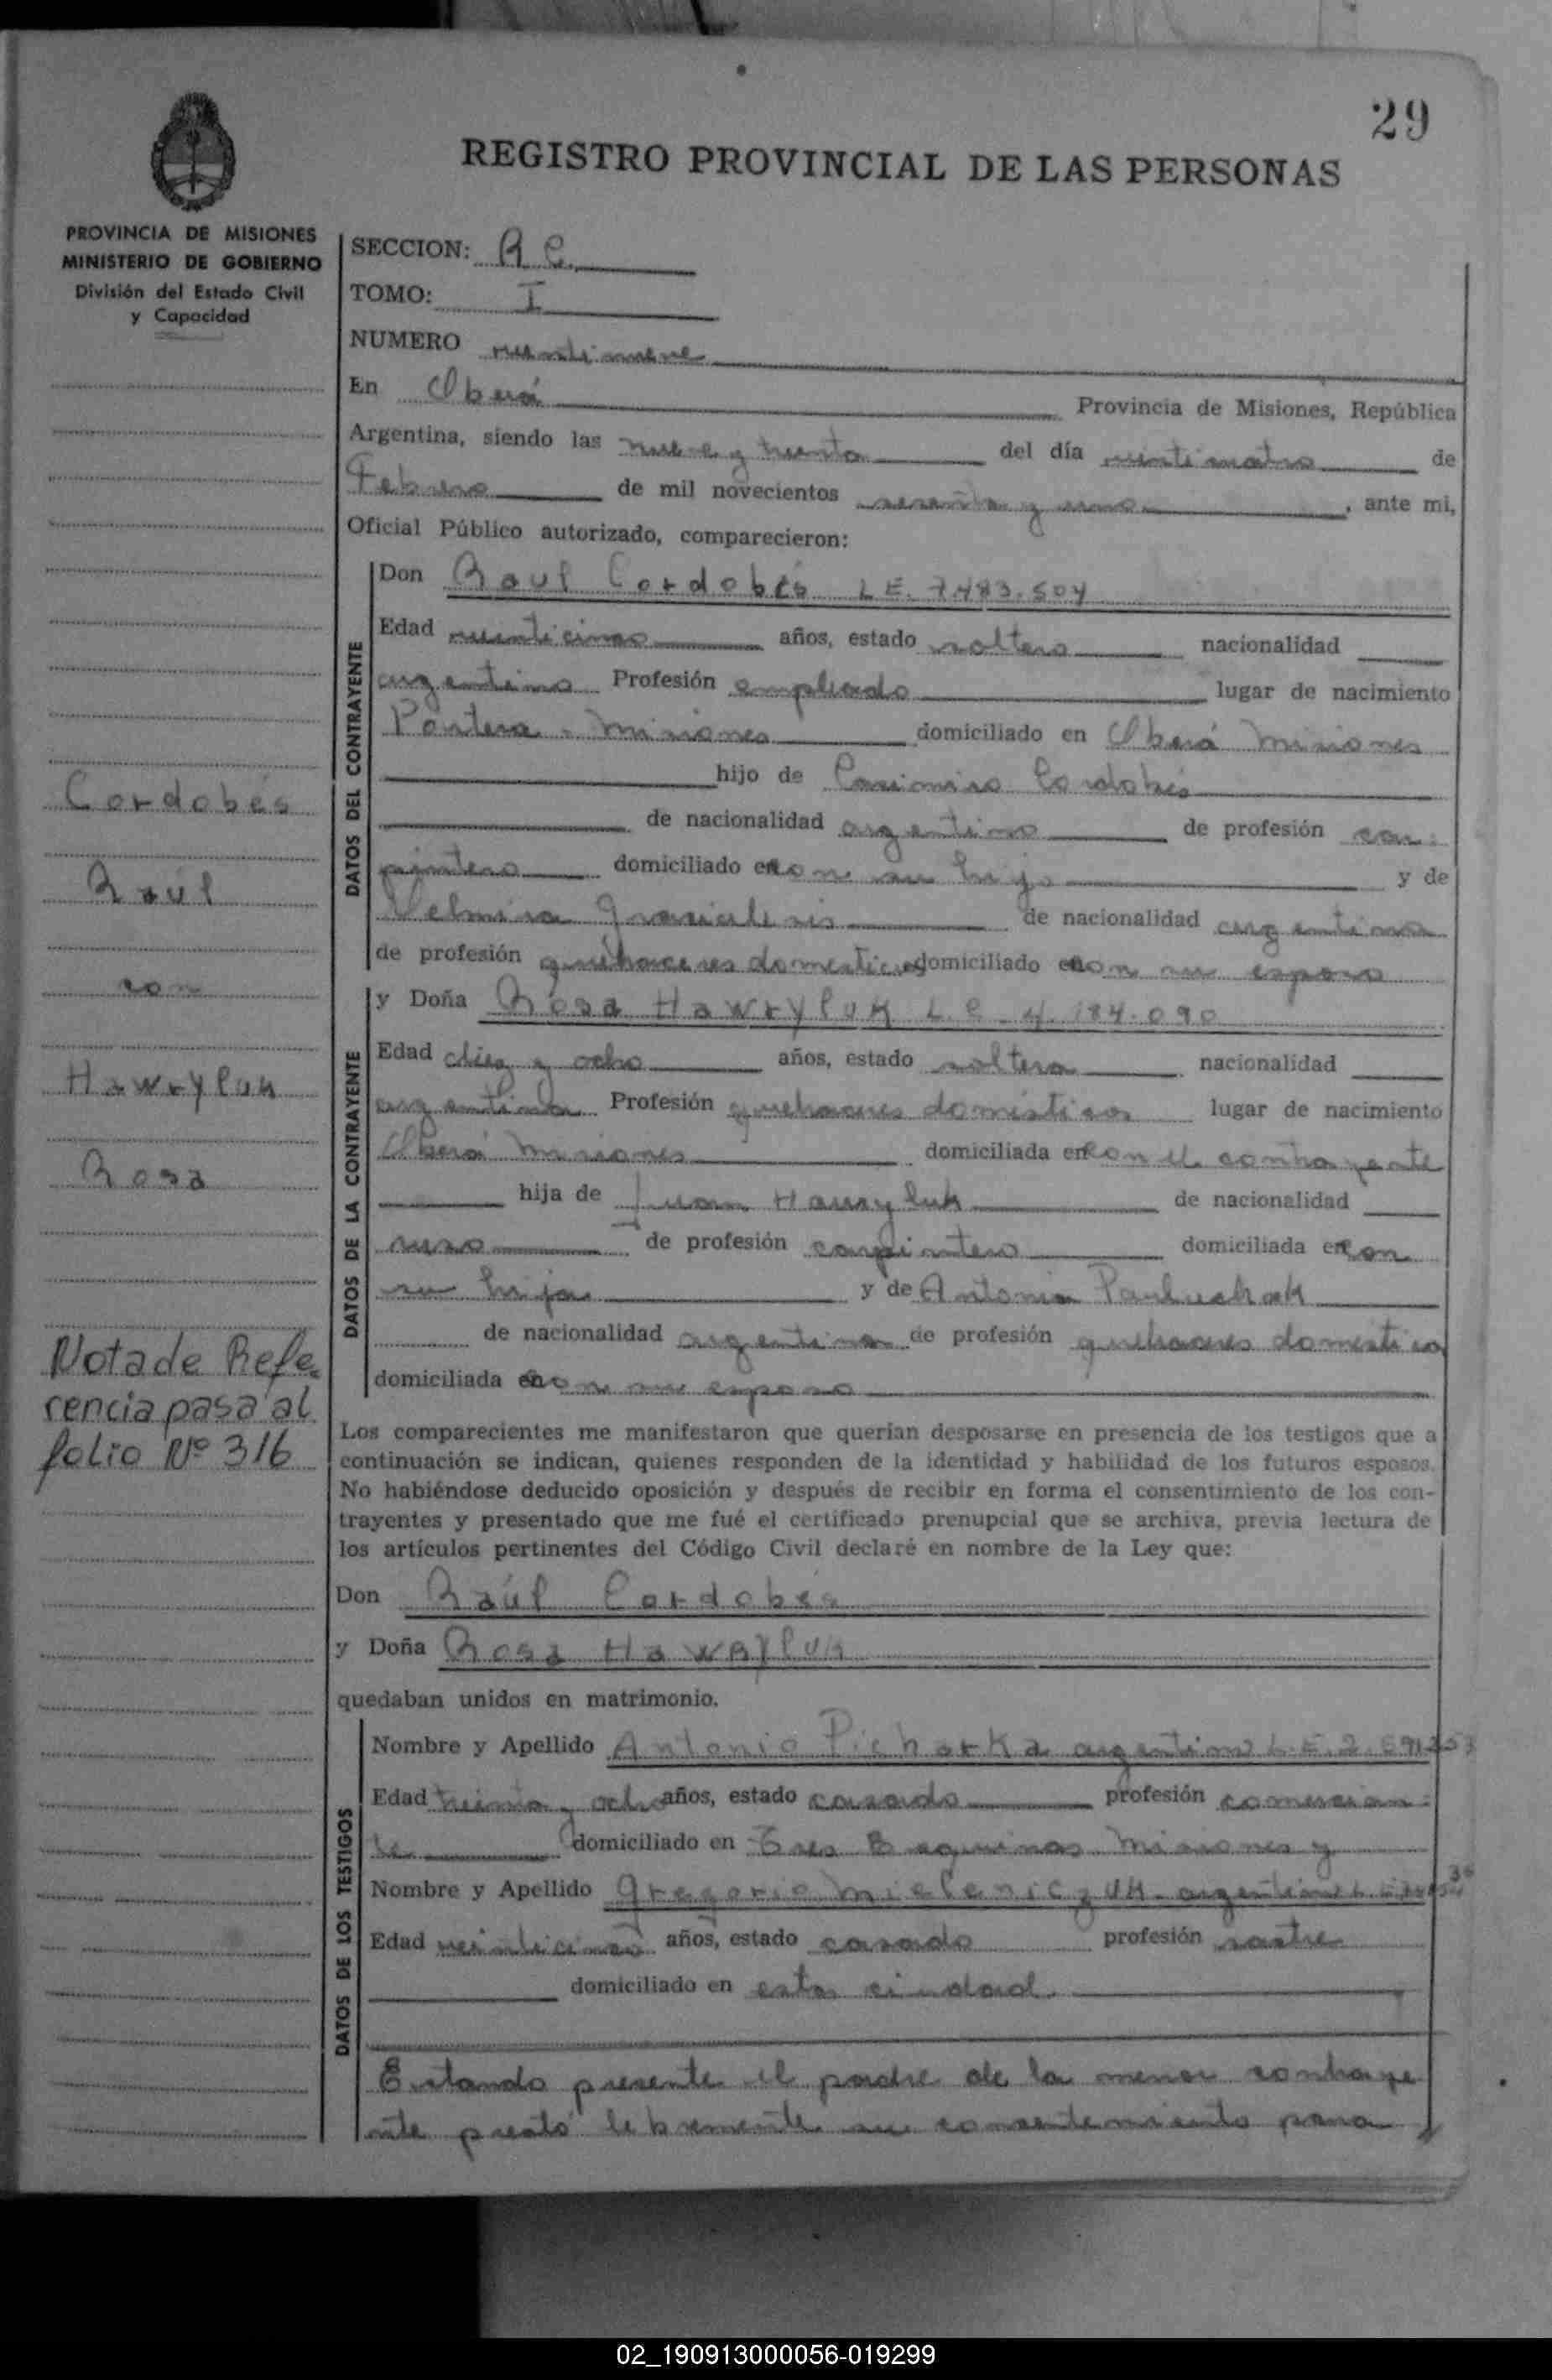 29
REGISTRO PROVINCIAL DE LAS PERSONAS
PROVINCIA DE MISIONES
MINISTERIO DE GOBIERNO
División del Estado Civil
y Capacidad
SECCION: R C.
TOMO: I
NUMERO veintinueve
En Oberá Provincia de Misiones, República
Argentina, siendo las nueve y treinta del día veinticuatro de
Febrero de mil novecientos sesenta y uno, ante mi,
Oficial Público autorizado, comparecieron:
DATOS DEL CONTRAYENTE
Don Raul Cordobés L E. 7.483.504
Edad veinticinco años, estado soltero nacionalidad
argentino Profesión empleado lugar de nacimiento
Misiones domiciliado en Oberá Misiones
hijo de Casimiro Cordobés
de nacionalidad argentino de profesión car-
pintero domiciliado con su hijo y de
de nacionalidad argentina
de profesión quehaceres domesticos domiciliado con su esposo
DATOS DE LA CONTRAYENTE
y Doña Rosa Hawryluk L. C. 4.184.090
Edad diez y ocho años, estado soltera nacionalidad
argentina Profesión quehaceres domésticos lugar de nacimiento
Oberá Misiones domiciliada en con el contrayente
hija de Juan Hawryluk de nacionalidad
ruso de profesión carpintero domiciliada con
su hija y de Antonia Pauluchak
de nacionalidad argentina de profesión quehaceres domésticos
domiciliada con su esposo
Los comparecientes me manifestaron que querían desposarse en presencia de los testigos que a
continuación se indican, quienes responden de la identidad y habilidad de los futuros esposos.
No habiéndose deducido oposición y después de recibir en forma el consentimiento de los con-
trayentes y presentado que me fué el certificado prenupcial que se archiva, previa lectura de
los artículos pertinentes del Código Civil declaré en nombre de la Ley que:
Don Raúl Cordobés
y Doña Rosa Hawryluk
quedaban unidos en matrimonio.
DATOS DE LOS TESTIGOS
Nombre y Apellido Antonio Picharka argentino L.E. 2.
Edad treinta y ocho años, estado casado profesión comercian-
te domiciliado en Tres Esquinas Misiones y
Nombre y Apellido Gregorio Mieleniczuk - argentino L. E.
Edad veinticinco años, estado casado profesión sastre
domiciliado en esta ciudad
Estando presente el padre de la menor contraye
nte prestó libremente su consentimiento para
Cordobés
Raúl
con
Hawryluk
Rosa
Nota de Refe-
rencia pasa al
folio Nº 316
02_190913000056-019299